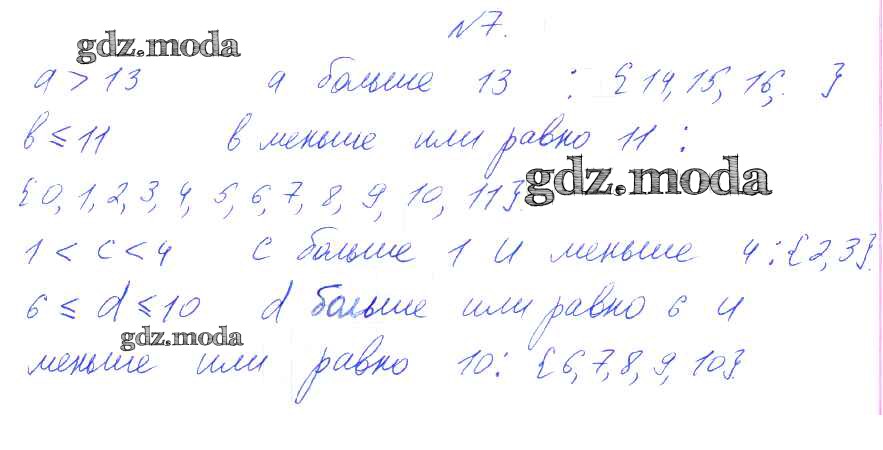 №7.
gdz.moda
a > 13 a больше 13 : {14, 15, 16, }
в ≤ 11 в меньше или равно 11 :
{0, 1, 2, 3, 4, 5, 6, 7, 8, 9, 10, 11}.
gdz.moda
1 < c < 4 c больше 1 и меньше 4 : {2, 3}.
6 ≤ d ≤ 10 d больше или равно 6 и
gdz.moda
меньше или равно 10: {6, 7, 8, 9, 10}.